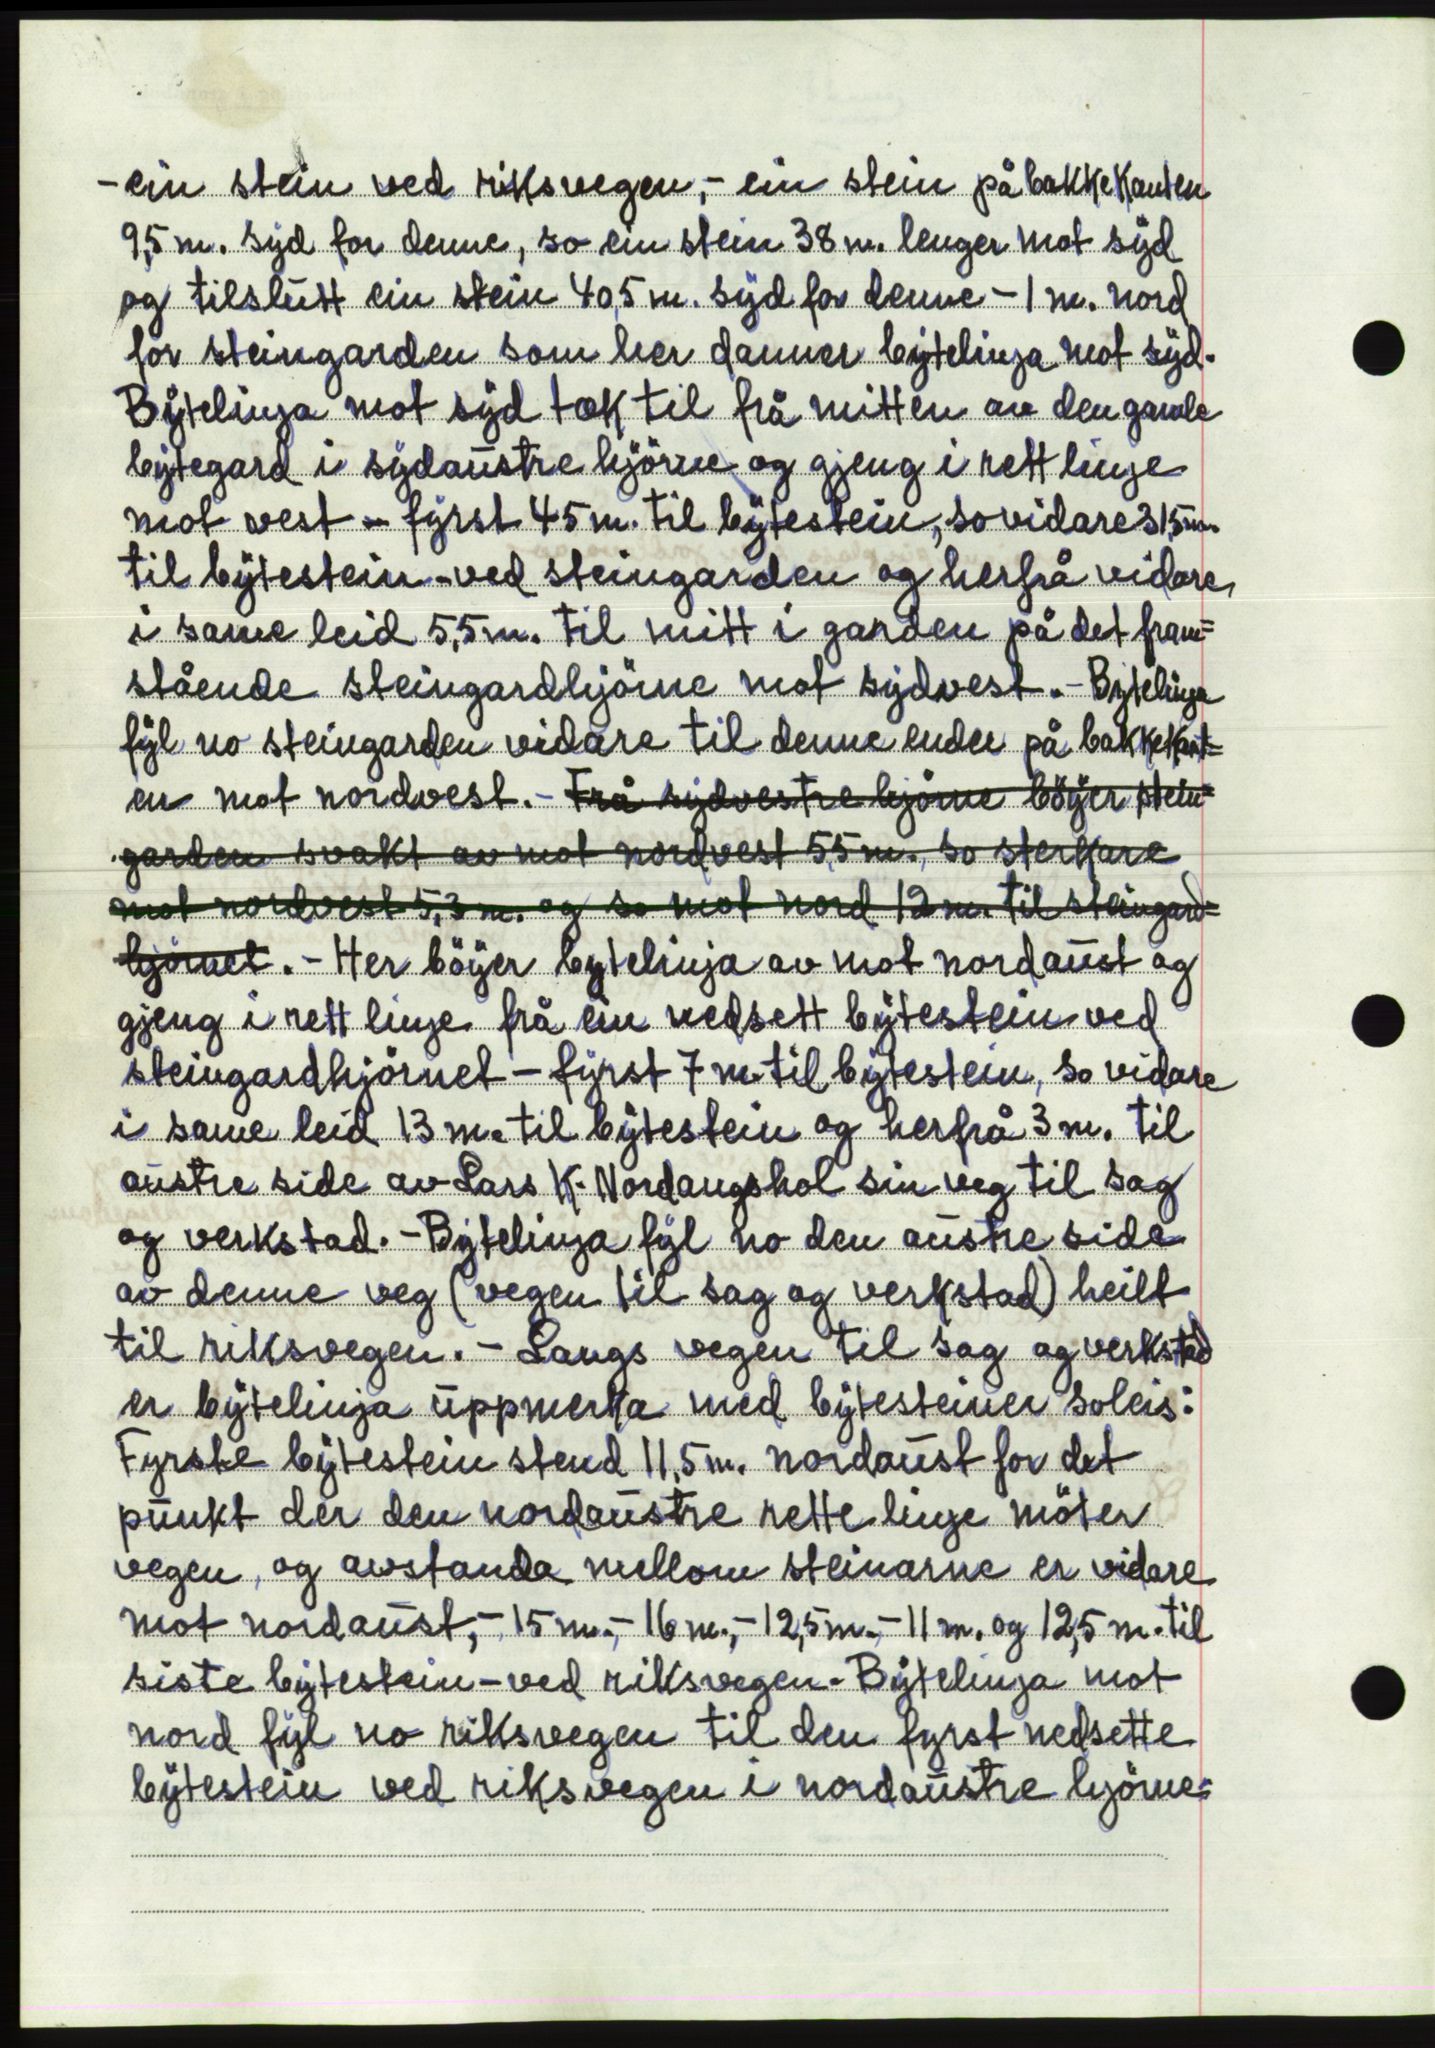 - ein stein ved riksvegen,- ein stein på bakkekanten
9,5 m. syd for denne, so ein stein 38 m. lenger mot syd
og tilslutt ein stein 40,5 m. syd for denne - 1 m. nord
for steingarden som her danner bytelinja mot syd.
Bytelinja mot syd tok til frå mitten av den gamle
bytegard i sydaustre hjörne og gjeng i rett linje
mot vest - fyrst 45 m. til bytestein, so vidare 31,5 m.
til bytestein - ved steingarden og herfrå vidare
i same leid 5,5 m. til mitt i garden på det fram=
stående steingardhjörne mot sydvest. - Bytelinja
fyl no steingarden vidare til denne ender på bakkekant=
en mot nordvest. - Frå sydvestre hjörne böyer stein=
garden svakt av mot nordvest 5,5 m., so sterkare
mot nordvest 5,3 m. og so mot nord 12 m. til steingard=
hjörnet. - Her böyer bytelinja av mot nordaust og
gjeng i rett linje frå ein nedsett bytestein ved
steingardhjörnet - fyrst 7 m. til bytestein, so vidare
i same leid 13 m. til bytestein og herfrå 3 m. til
austre side av Lars K. Nordangshol sin veg til sag
og verkstad. - Bytelinja fyl no den austre side
av denne veg (vegen til sag og verkstad) heilt
til riksvegen. - Langs vegen til sag og verkstad
er bytelinja uppmerka med bytesteiner soleis:
Fyrste bytestein stend 11,5 m. nordaust for det
punkt der den nordaustre rette linje möter
vegen, og avstanda millom steinarne er vidare
mot nordaust,- 15 m.,- 16 m.,- 12,5 m.- 11 m. og 12,5 m. til
siste bytestein - ved riksvegen. Bytelinja mot
nord fyl no riksvegen til den fyrst nedsette
bytestein ved riksvegen i nordaustre hjörne=